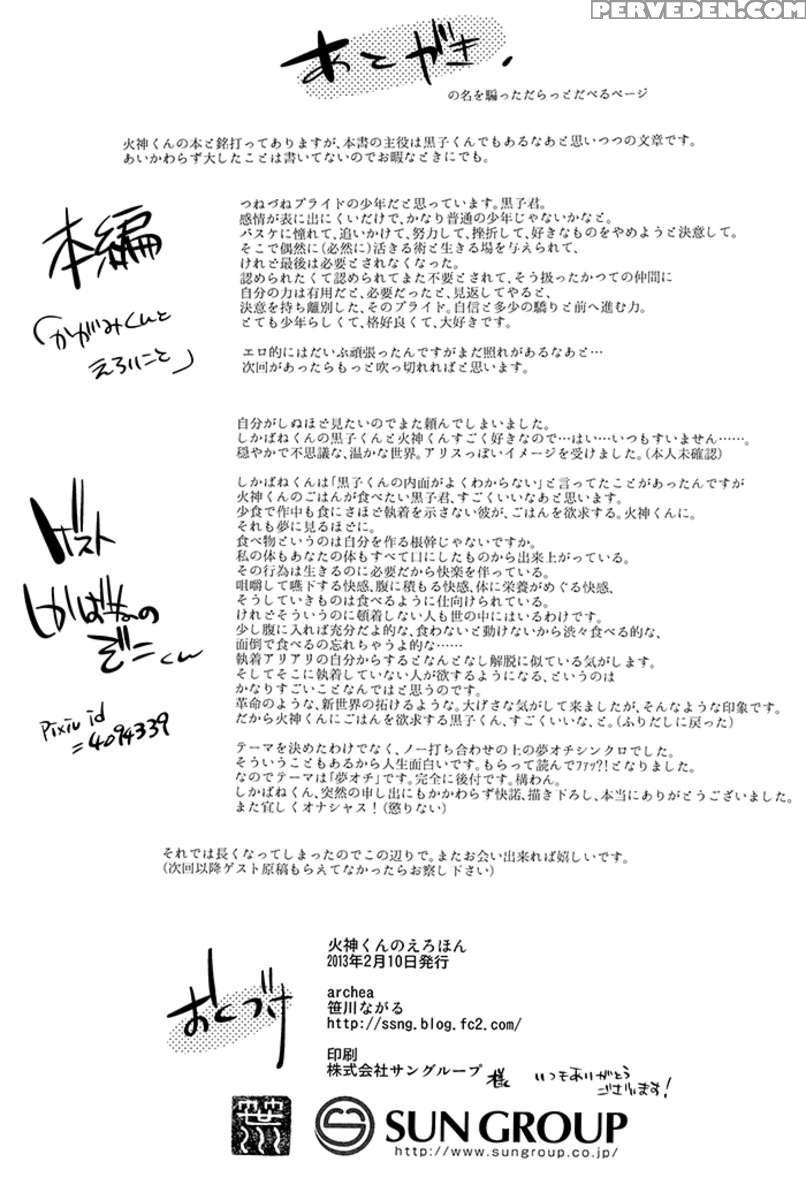 PERVEDEN.COM
あとがき.
の名を騙っただらっとだべるページ
火神くんの本と銘打ってありますが、本書の主役は黒子くんでもあるなあと思いつつの文章です。
あいかわらず大したことは書いてないのでお暇なときにでも。
本編
「かがみくんと
えろいこと」
つねづねプライドの少年だと思っています。黒子君。
感情が表に出にくいだけで、かなり普通の少年じゃないかなと。
バスケに憧れて、追いかけて、努力して、挫折して、好きなものをやめようと決意して。
そこで偶然に(必然に)活きる術と生きる場を与えられて、
けれど最後は必要とされなくなった。
認められたくて認められてまた不要とされて、そう扱ったかつての仲間に
自分の力は有用だと、必要だったと、見返してやると、
決意を持ち離別した、そのプライド。自信と多少の驕りと前へ進む力。
とても少年らしくて、格好良くて、大好きです。
エロ的にはだいぶ頑張ったんですがまだ照れがあるなあと…
次回があったらもっと吹っ切れればと思います。
ゲスト
しかばねの
ぞこくん
Pixiv id
=4094339
自分がしぬほど見たいのでまた頼んでしまいました。
しかばねくんの黒子くんと火神くんすごく好きなので…はい…いつもすいません……。
穏やかで不思議な、温かな世界。アリスっぽいイメージを受けました。(本人未確認)
しかばねくんは「黒子くんの内面がよくわからない」と言ってたことがあったんですが
火神くんのごはんが食べたい黒子君、すごくいいなあと思います。
少食で作中も食にさほど執着を示さない彼が、ごはんを欲求する。火神くんに。
それも夢に見るほどに。
食べ物というのは自分を作る根幹じゃないですか。
私の体もあなたの体もすべて口にしたものから出来上がっている。
その行為は生きるのに必要だから快楽を伴っている。
咀嚼して嚥下する快感、腹に積もる快感、体に栄養がめぐる快感、
そうしていきものは食べるように仕向けられている。
けれどそういうのに頓着しない人も世の中にはいるわけです。
少し腹に入れば充分だよ的な、食わないと動けないから渋々食べる的な、
面倒で食べるの忘れちゃうよ的な……
執着アリアリの自分からするとなんとなし解脱に似ている気がします。
そしてそこに執着していない人が欲するようになる、というのは
かなりすごいことなんではと思うのです。
革命のような、新世界の拓けるような。大げさな気がして来ましたが、そんなような印象です。
だから火神くんにごはんを欲求する黒子くん、すごくいいな、と。(ふりだしに戻った)
テーマを決めたわけでなく、ノー打ち合わせの上の夢オチシンクロでした。
そういうこともあるから人生面白いです。もらって読んでｱｱｯ?!となりました。
なのでテーマは「夢オチ」です。完全に後付です。構わん。
しかばねくん、突然の申し出にもかかわらず快諾、描き下ろし、本当にありがとうございました。
また宜しくオナシャス！(懲りない)
それでは長くなってしまったのでこの辺りで。またお会い出来れば嬉しいです。
(次回以降ゲスト原稿もらえてなかったらお察し下さい)
おくづけ
火神くんのえろほん
2013年2月10日発行
archea
笹川ながる
http://ssng.blog.fc2.com/
印刷
株式会社サングループ 様 いつもありがとう
ございます!
笹川
SUN GROUP
http://www.sungroup.co.jp/